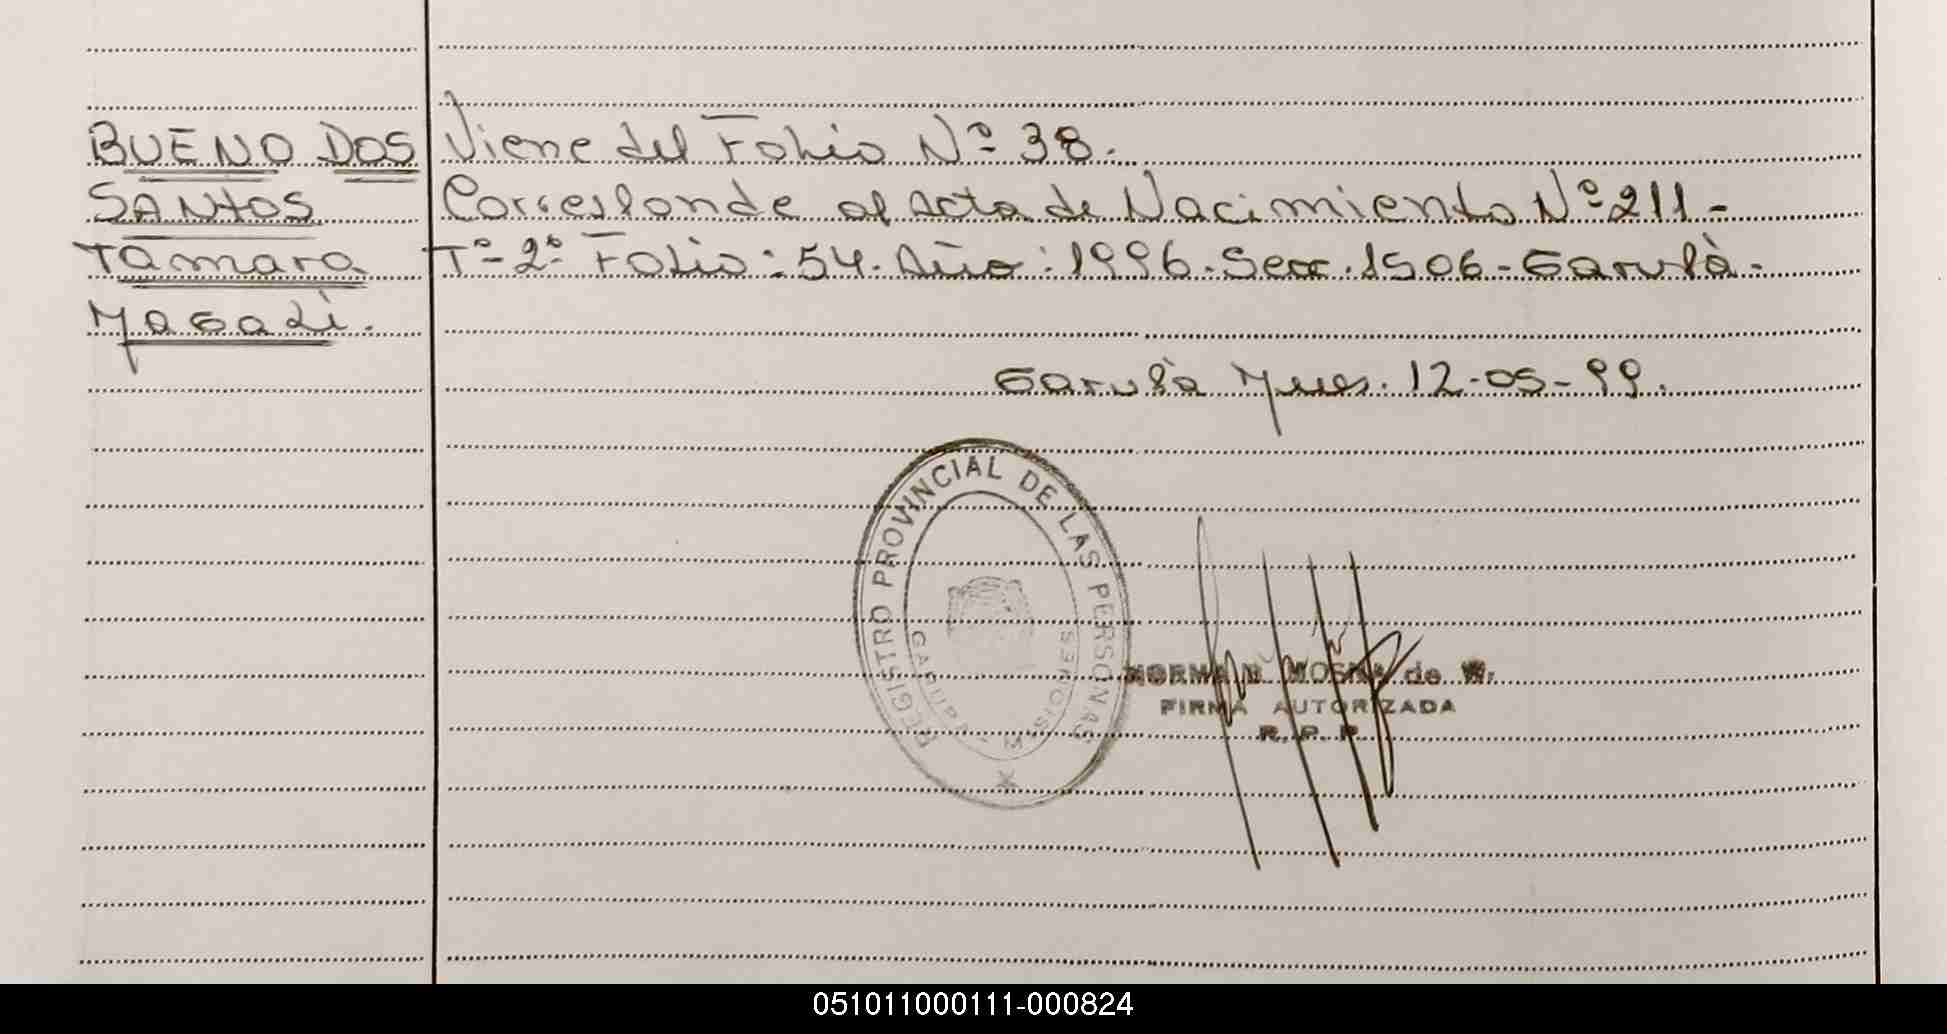 BUENO DOS
SANTOS
Tamara
Magali.
Viene del Folio Nº 38.
Corresponde al Acta de Nacimiento Nº 211-
Tº- 2º Folio: 54. Año: 1996. Secc. 1506- Garupà.
Garupà Mnes. 12-05-99.
REGISTRO PROVINCIAL DE LAS PERSONAS
GARUPA - MISIONES
NORMA B. MOSNA de W.
FIRMA AUTORIZADA
R. P. P.
051011000111-000824